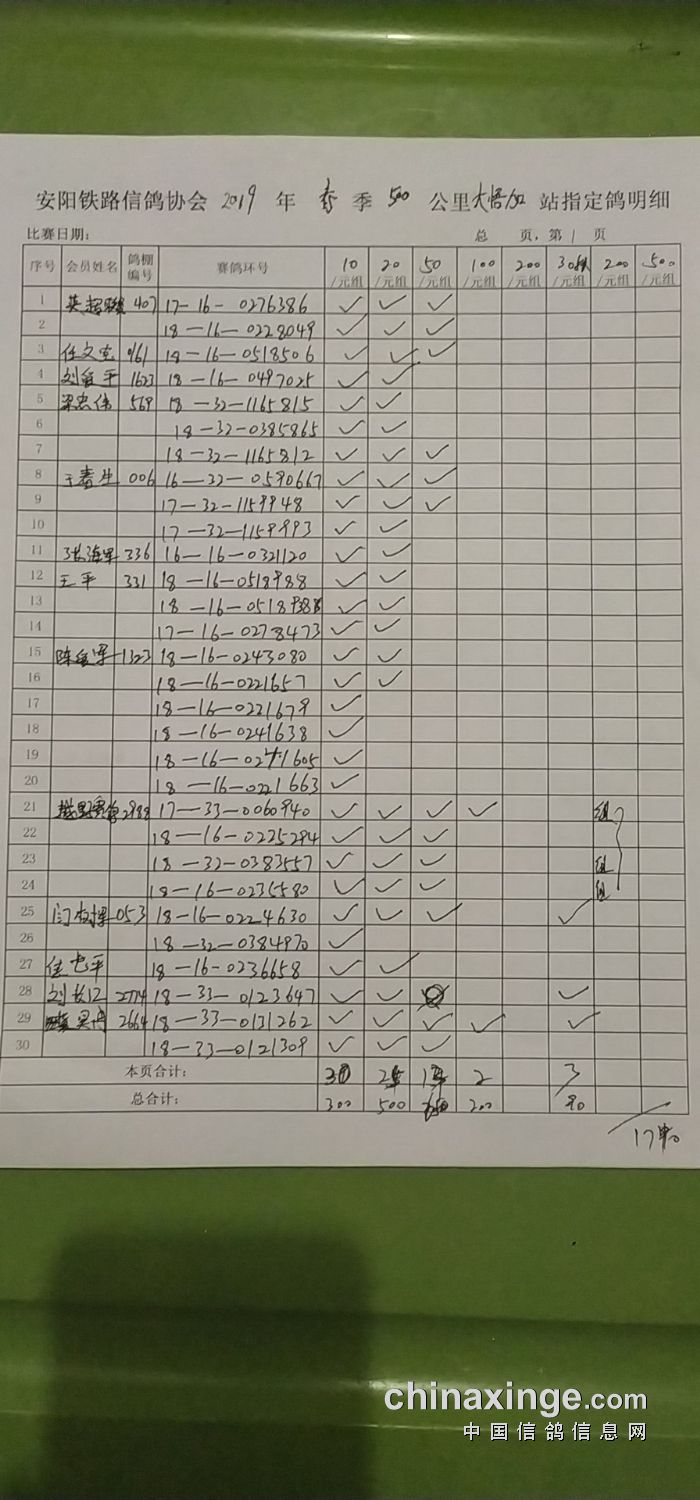 安阳铁路信鸽协会 2019 年 春 季 500 公里 大悟加 站指定鸽明细
比赛日期: 总 页,第 1 页
序号 会员姓名 鸽棚编号 赛鸽环号 10/元组 20/元组 50/元组 100/元组 200/元组 /元组 200/元组 500/元组
1 407 17-16-0276386 ✓ ✓ ✓
2 18-16-0228049 ✓ ✓ ✓
3 任文 18-16-0518506 ✓ ✓ ✓
4 刘 平 1623 18-16-0497025 ✓ ✓
5 梁忠伟 569 18-32-1165815 ✓ ✓
6 18-32-0385865 ✓ ✓
7 18-32-1165812 ✓ ✓ ✓
8 于春生 006 16-32-0590667 ✓ ✓ ✓
9 17-32-1159948 ✓ ✓ ✓
10 17-32-1159993 ✓ ✓
11 张海军 336 16-16-0321120 ✓ ✓
12 王平 331 18-16-0518988 ✓ ✓
13 ✓ ✓
14 17-16-0278473 ✓ ✓
15 陈 军 1323 18-16-0243080 ✓ ✓
16 18-16-0221657 ✓ ✓
17 18-16-0221679 ✓
18 18-16-0241638 ✓
19 ✓
20 18-16-0221663 ✓
21 2988 17-33-0060940 ✓ ✓ ✓ ✓ 组
22 18-16-0235294 ✓ ✓ ✓
23 18-32-0383557 ✓ ✓ ✓ 组
24 18-16-0235580 ✓ ✓ ✓ 组
25 053 18-16-0224630 ✓ ✓ ✓ ✓
26 18-32-0384970 ✓
27 18-16-0236658 ✓ ✓
28 刘长江 2774 18-33-0123647 ✓ ✓ ✓
29 2664 18-33-0131262 ✓ ✓ ✓ ✓ ✓
30 18-33-0121309 ✓ ✓ ✓
本页合计: 30 25 2 3
总合计: 300 500 200 90
chinaxinge.com
中国信鸽信息网